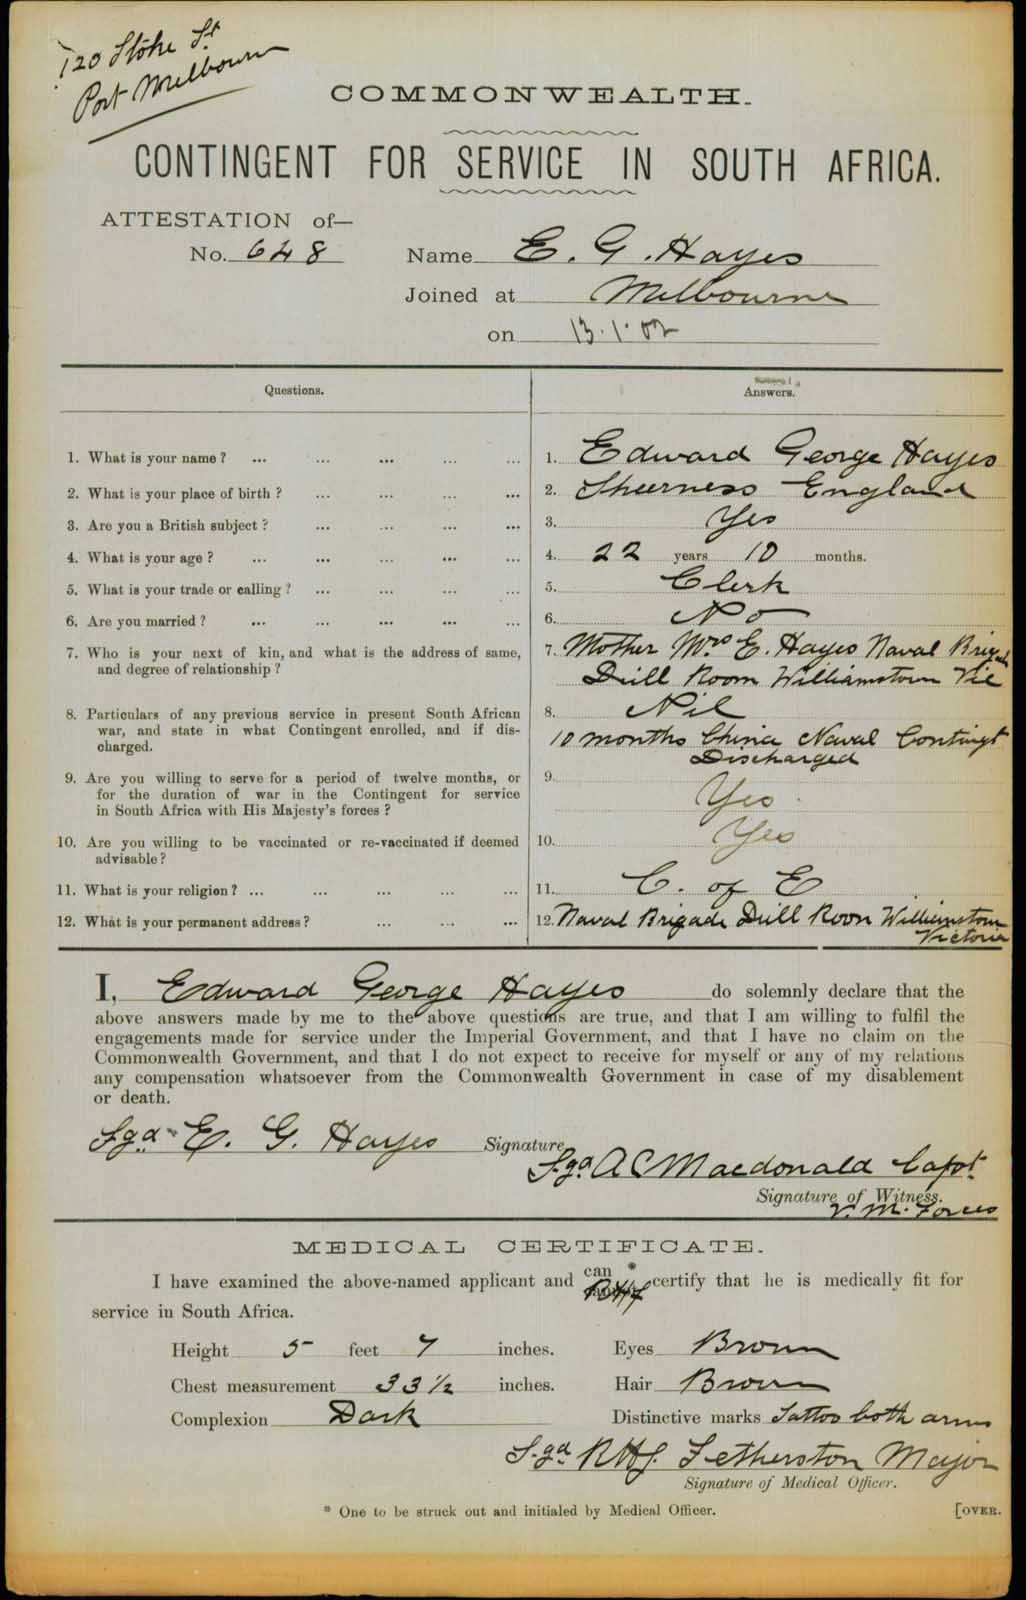 120 Stoke St
Port Melbourn
COMMONWEALTH.
CONTINGENT FOR SERVICE IN SOUTH AFRICA.
ATTESTATION of—
No. 648 Name E. G. Hayes
Joined at Melbourne
on 13.1.02
Questions. Answers.
1. What is your name? ... ... ... ... ... 1. Edward George Hayes
2. What is your place of birth? ... ... ... ... 2. Sheerness England
3. Are you a British subject? ... ... ... ... 3. Yes
4. What is your age? ... ... ... ... ... 4. 22 years 10 months.
5. What is your trade or calling? ... ... ... ... 5. Clerk
6. Are you married? ... ... ... ... ... 6. No
7. Who is your next of kin, and what is the address of same, 7. Mother Mrs E. Hayes Naval Brigade
and degree of relationship? Drill Room Williamstown Vic
8. Particulars of any previous service in present South African 8. Nil
war, and state in what Contingent enrolled, and if dis- 10 months China Naval Contingt
charged. Discharged
9. Are you willing to serve for a period of twelve months, or 9.
for the duration of war in the Contingent for service Yes
in South Africa with His Majesty's forces?
10. Are you willing to be vaccinated or re-vaccinated if deemed 10. Yes
advisable?
11. What is your religion? ... ... ... ... ... 11. C. of E
12. What is your permanent address? ... ... ... 12. Naval Brigade Drill Room Williamstown
Victoria
I, Edward George Hayes do solemnly declare that the
above answers made by me to the above questions are true, and that I am willing to fulfil the
engagements made for service under the Imperial Government, and that I have no claim on the
Commonwealth Government, and that I do not expect to receive for myself or any of my relations
any compensation whatsoever from the Commonwealth Government in case of my disablement
or death.
Sgd. E. G. Hayes Signature
Sgd A C Macdonald Capt.
Signature of Witness.
V. M. Forces
MEDICAL CERTIFICATE.
I have examined the above-named applicant and can * certify that he is medically fit for
service in South Africa.
Height 5 feet 7 inches. Eyes Brown
Chest measurement 33 1/2 inches. Hair Brown
Complexion Dark Distinctive marks Tattoo both arms
Sgd RHJ. Fetherston Major
Signature of Medical Officer.
* One to be struck out and initialed by Medical Officer. [OVER.